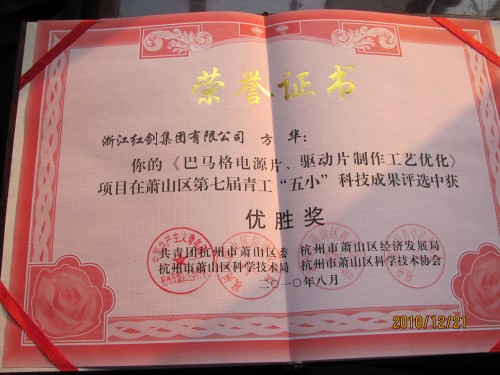 荣誉证书
浙江红剑集团有限公司 方 华：
你的《巴马格电源片、驱动片制作工艺优化》
项目在萧山区第七届青工“五小”科技成果评选中获
优胜奖
共青团杭州市萧山区委 杭州市萧山区经济发展局
杭州市萧山区科学技术局 杭州市萧山区科学技术协会
二〇一〇年八月
2010/12/21